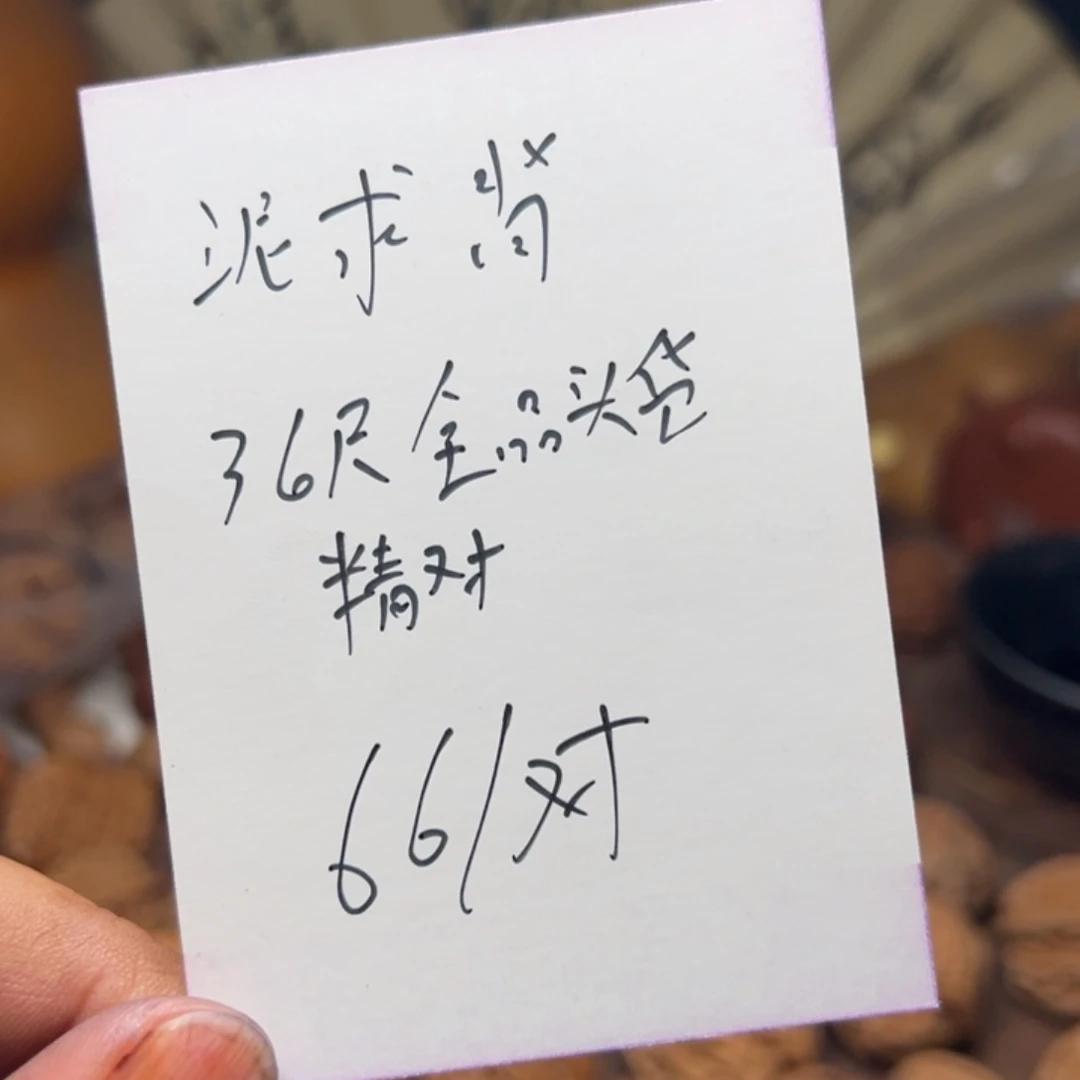 泥求省
36尺全品头苍
精对
66/对